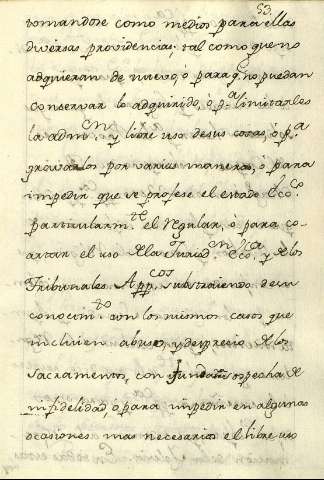 53
tomandose como medios para ellas
diversas providencias; tal como que no
adquieran de nuevo, ó para q.e no puedan
conservar lo adquirido, ó p.a limitarles
la adm.cn y libre uso de sus cosas, ó p.a
gravarlos por varias maneras, ó para
impedir que se profese el estado Ecc.co
particularm.te el Regular, ó para co-
artar el uso de la Jurisd.cn Ecc.ca y de los
Tribunales App.cos substraiendo de su
conocim.to con los mismos casos que
incluien abuso, y desprecio de los
Sacramentos, con fundada sospecha de
infidelidad, ó para impedir en algunas
ocasiones mas necesarias el libre uso